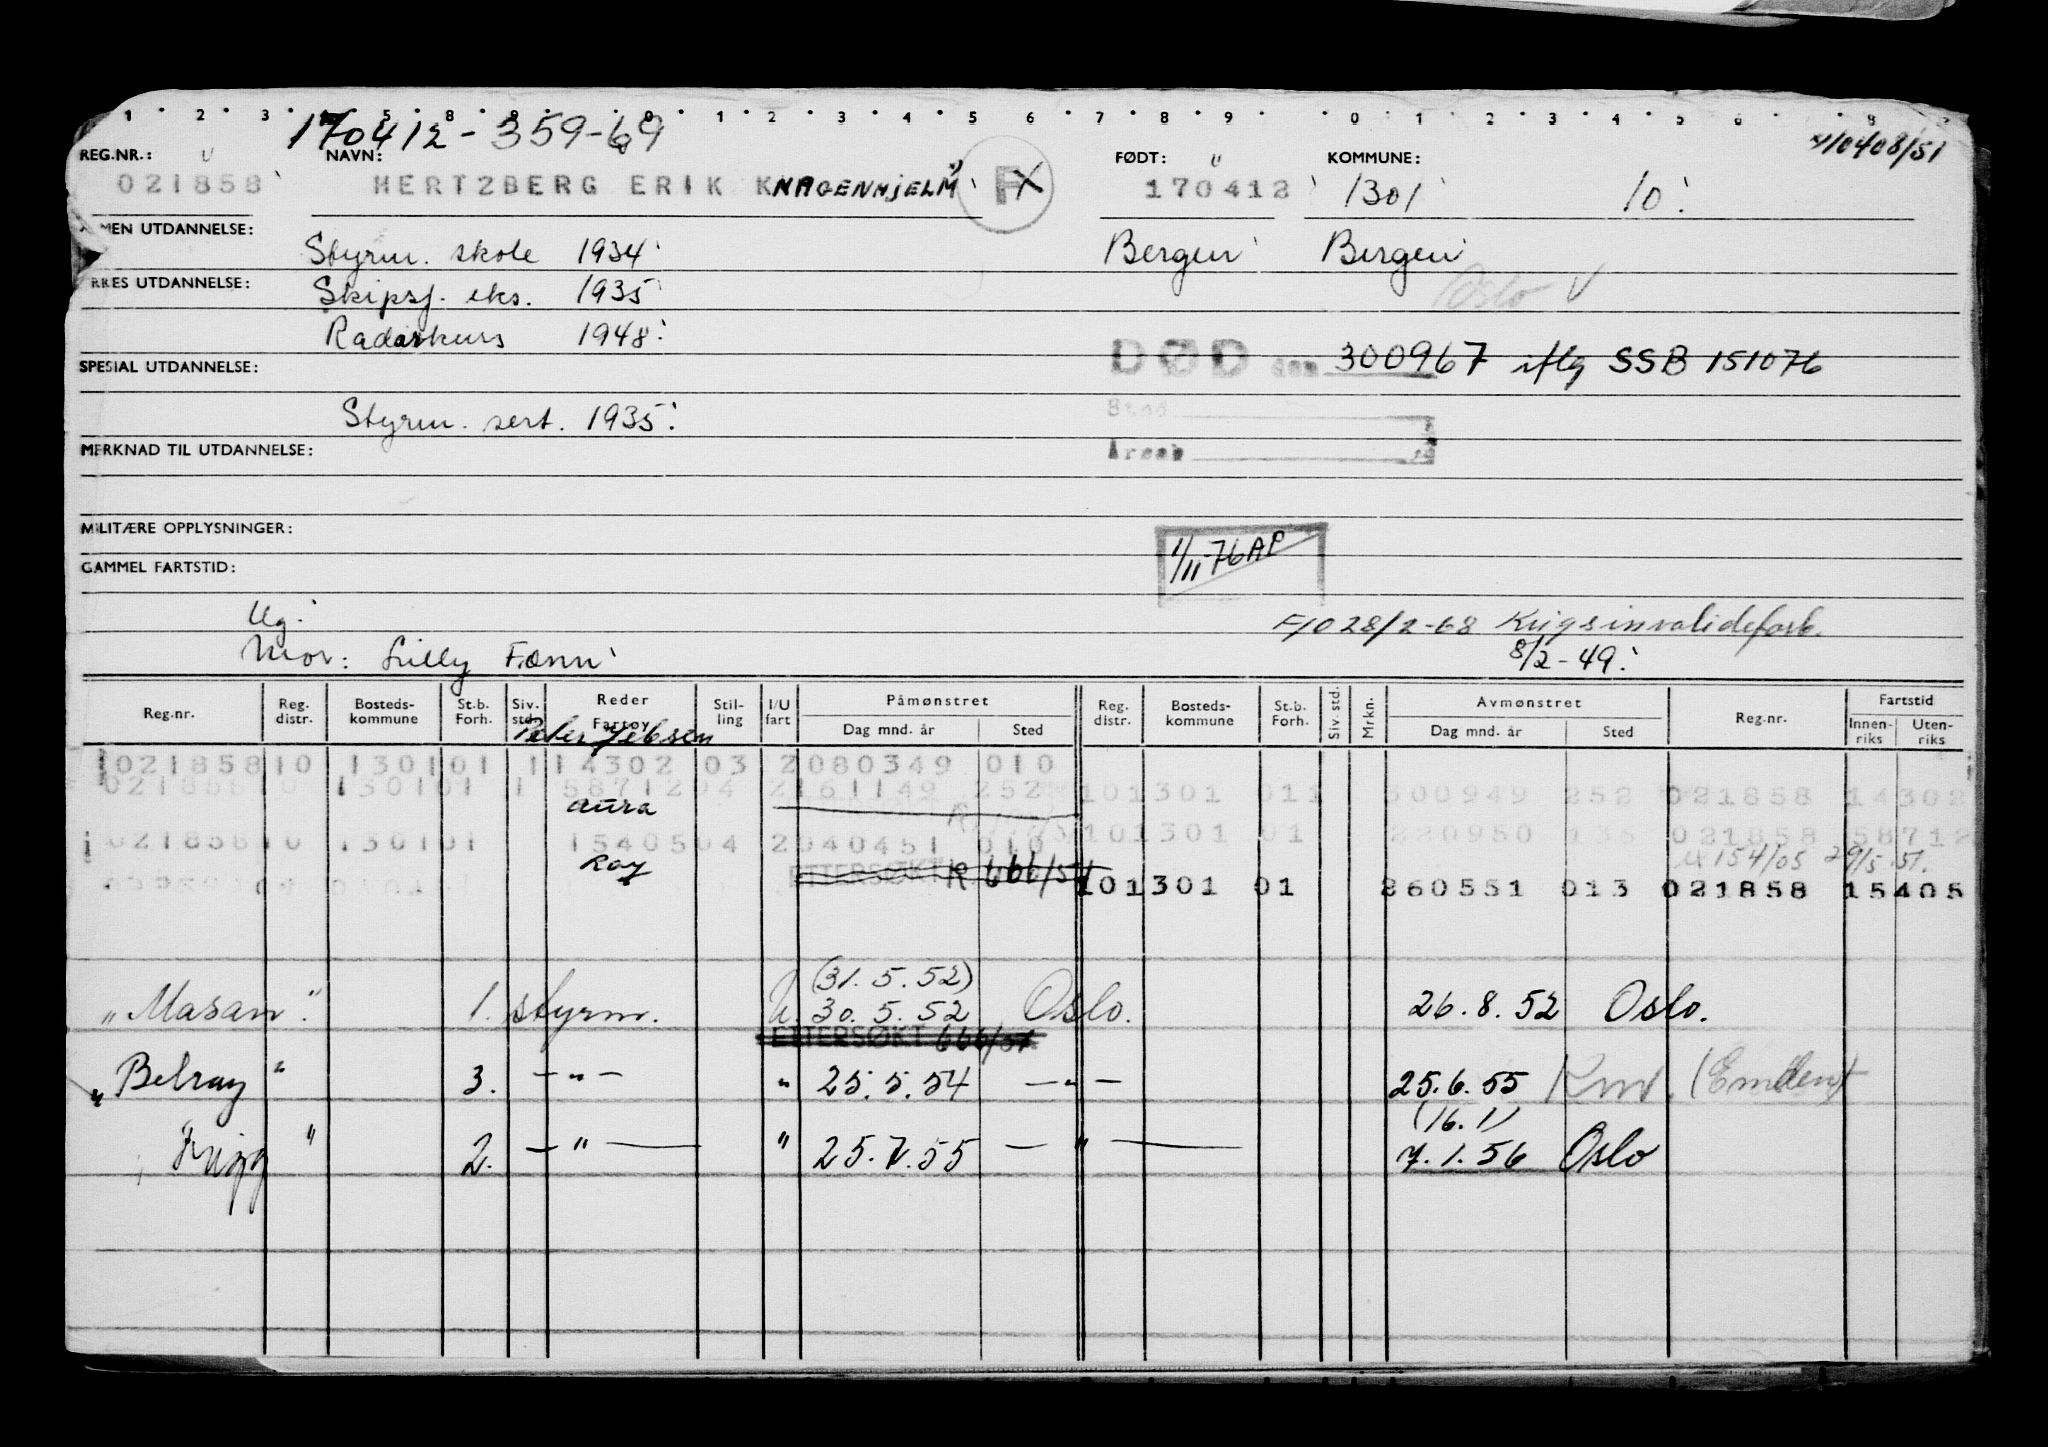 1 2 3 5 8 9 0 1 2 3 4 5 6 7 8 9 0 1 2 3 4 5 6 8
170412-359-69
4/0408/51
REG.NR.: NAVN: FØDT: KOMMUNE:
021858 HERTZBERG ERIK KNAGENHJELM FX 170412 1301 10
MEN UTDANNELSE: Styrm. skole 1934 Bergen Bergen
RKES UTDANNELSE: Skipsf. eks. 1935 Oslo V
Radarkurs 1948
SPESIAL UTDANNELSE: DØD den 300967 iflg SSB 151076
Styrm. sert. 1935 Sted
MERKNAD TIL UTDANNELSE: Årsak
MILITÆRE OPPLYSNINGER: 1/11-76 AP
GAMMEL FARTSTID:
Ug. F/O 28/2-68 Krigsinvalideforb.
Mor: Lilly Fænn 8/2-49
Reg.nr. Reg. distr. Bosteds-kommune St.b. Forh. Siv. std. Reder Fartøy Stil-ling I/U fart Påmønstret Dag mnd. år Sted Reg. distr. Bosteds-kommune St.b. Forh. Siv. std. Mrkn. Avmønstret Dag mnd. år Sted Reg.nr. Fartstid Innen-riks Uten-riks
Peter Jebsen
021858 10 1301 01 1 14302 03 2 080349 010
021858 10 1301 01 1 58712 04 2 161149 252 10 1301 01 1 300949 252 021858 14302
Aura
021858 10 1301 01 15405 04 2 040451 010 10 1301 01 220950 021858 58712
Roy ETTERSØKT R 666/51 154/05 29/5.51.
10 1301 01 260551 013 021858 15405
(31.5.52)
"Masan" 1. styrm. U 30.5.52 Oslo. 26.8.52 Oslo.
ETTERSØKT 666/51
"Belray" 3. -"- " 25.5.54 -"- 25.6.55 (Emden)
(16.1)
Frigg " 2. -"- " 25.7.55 -"- 7.1.56 Oslo